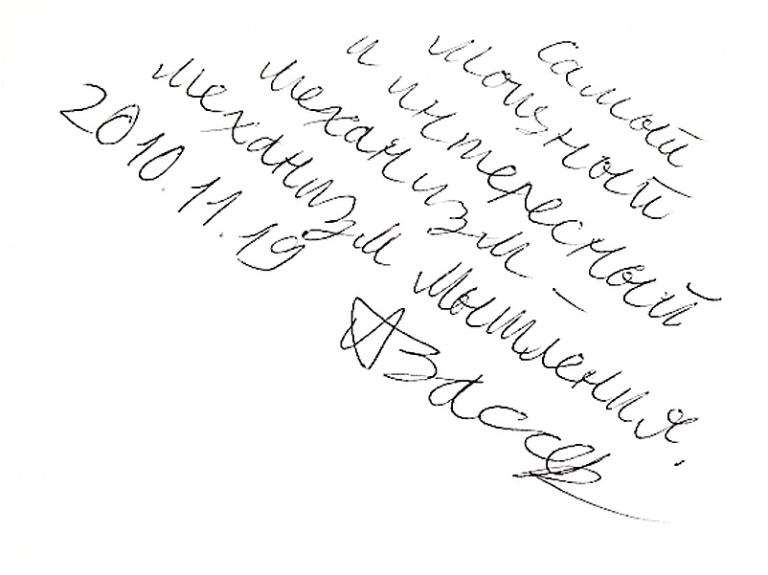 самый
мощный
и интересный
механизм –
механизм мышления.
2010.11.19